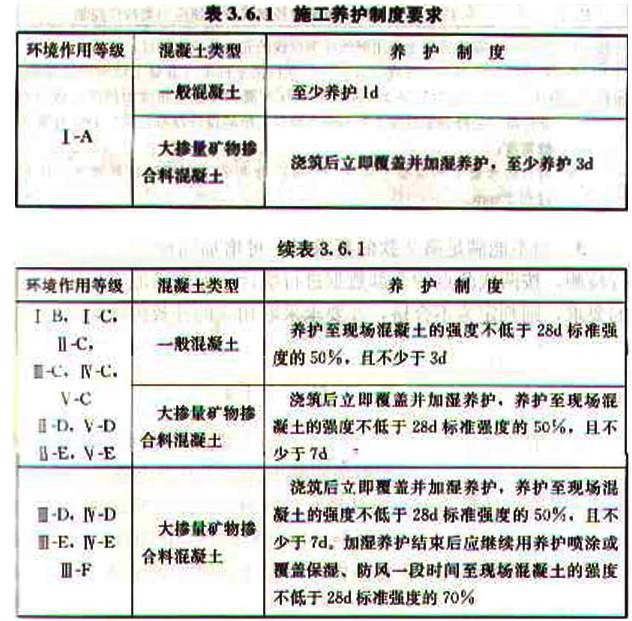 表 3.6.1 施工养护制度要求
环境作用等级 混凝土类型 养 护 制 度
Ⅰ-A
一般混凝土 至少养护 1d
大掺量矿物掺
合料混凝土
浇筑后立即覆盖并加湿养护，至少养护 3d
续表 3.6.1
环境作用等级 混凝土类型 养 护 制 度
Ⅰ-B，Ⅰ-C，
Ⅱ-C，
Ⅲ-C，Ⅳ-C，
Ⅴ-C
Ⅱ-D，Ⅴ-D
Ⅱ-E，Ⅴ-E
一般混凝土
养护至现场混凝土的强度不低于 28d 标准强
度的 50%，且不少于 3d
大掺量矿物掺
合料混凝土
浇筑后立即覆盖并加湿养护，养护至现场混
凝土的强度不低于 28d 标准强度的 50%，且不
少于 7d
Ⅲ-D，Ⅳ-D
Ⅲ-E，Ⅳ-E
Ⅲ-F
大掺量矿物掺
合料混凝土
浇筑后立即覆盖并加湿养护，养护至现场混
凝土的强度不低于 28d 标准强度的 50%，且不
少于 7d。加湿养护结束后应继续用养护喷涂或
覆盖保湿、防风一段时间至现场混凝土的强度
不低于 28d 标准强度的 70%